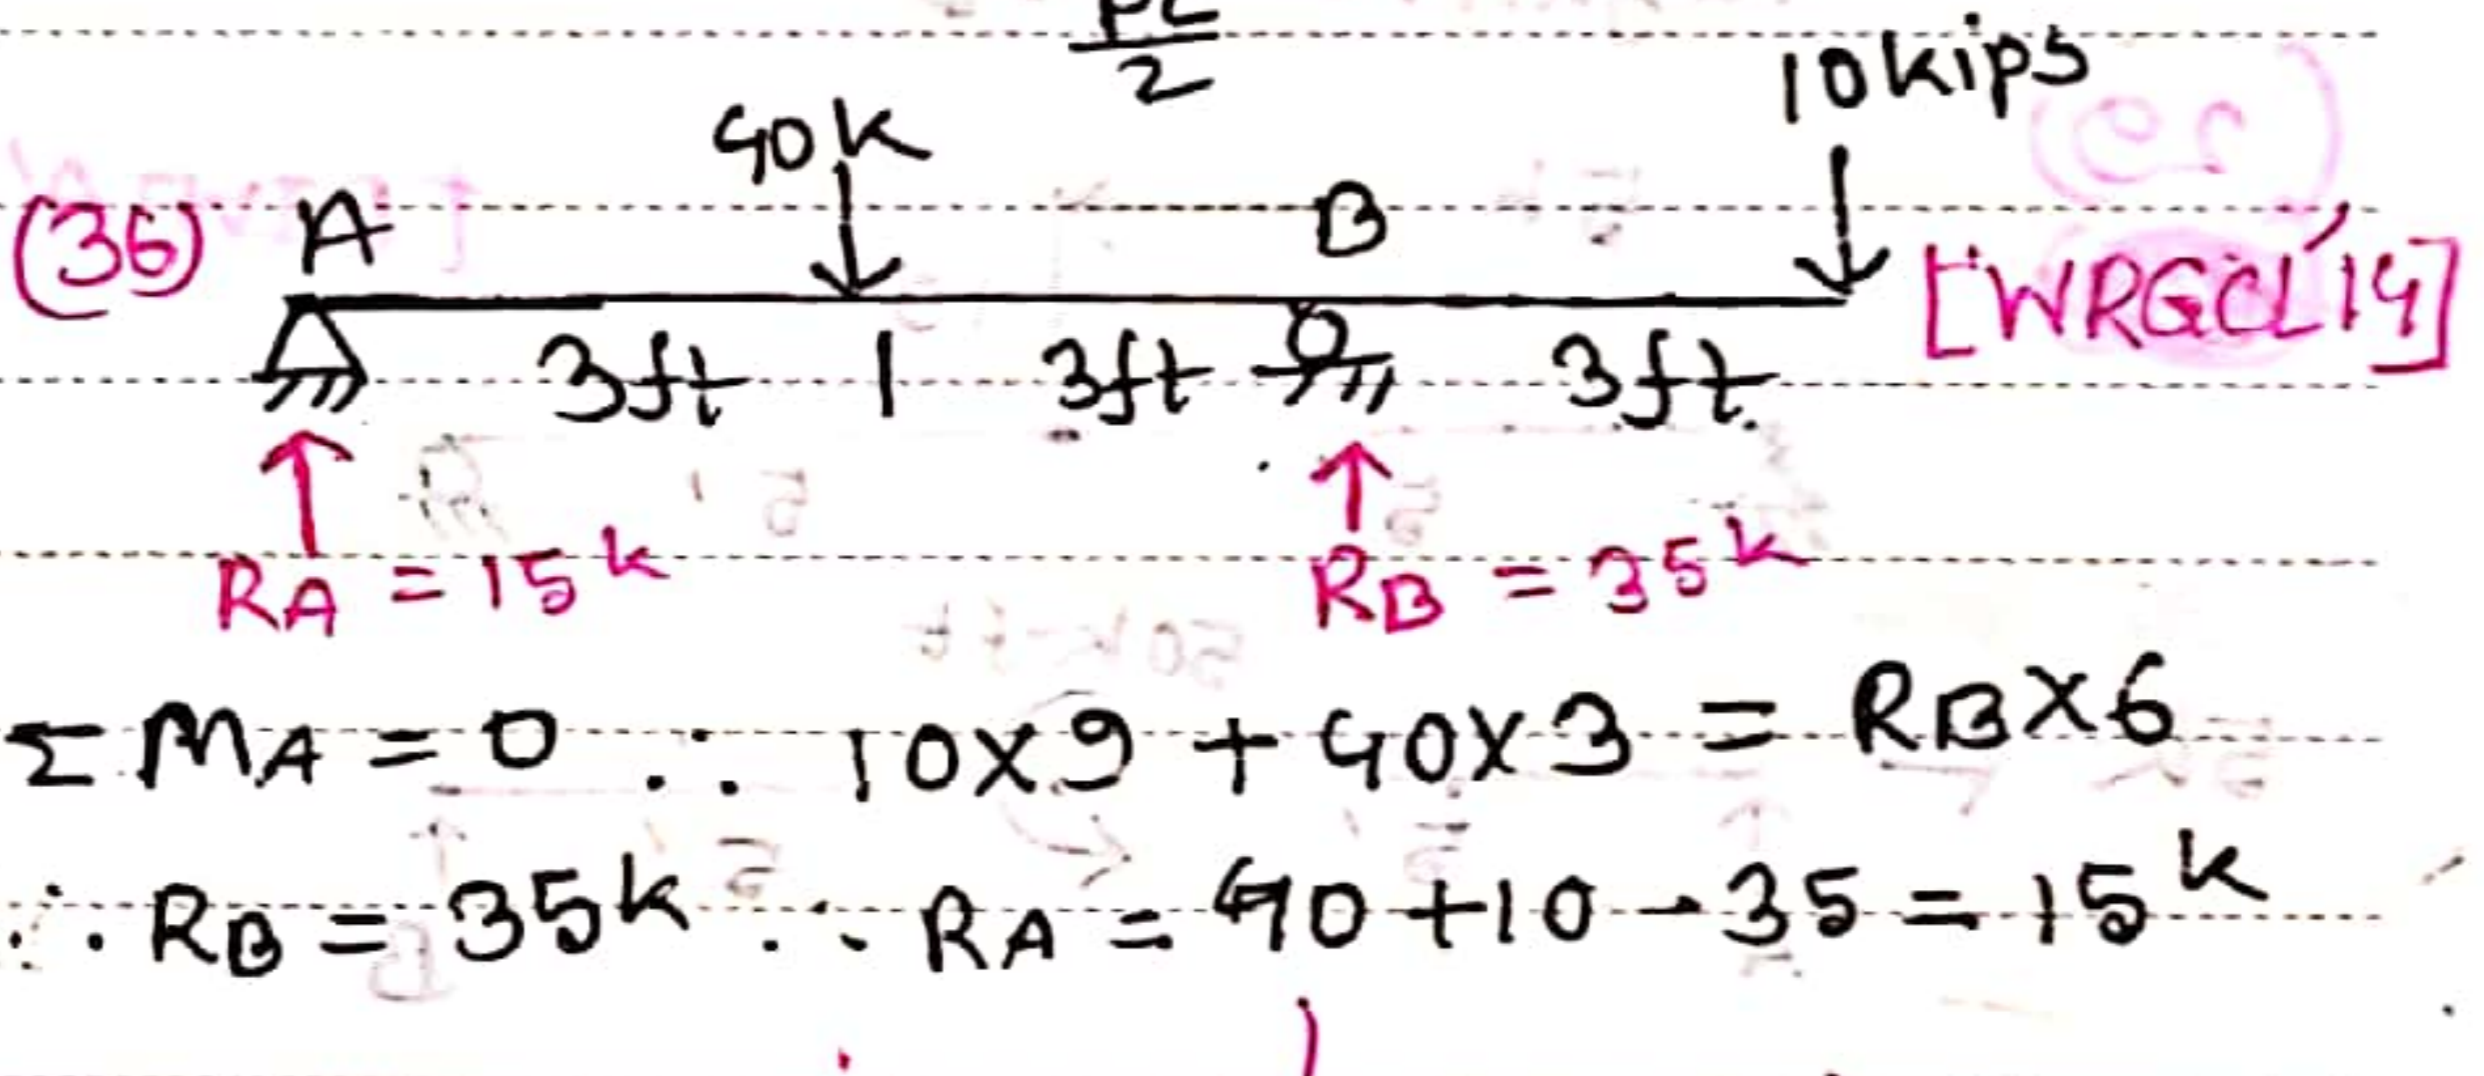 PL
2
40k
10kips
(36) A
B
[WRGCL'14]
3ft 3ft 3ft.
RA = 15k
RB = 35k
ΣMA = 0 ∴ 10×9 + 40×3 = RB×6
∴ RB = 35k ∴ RA = 40+10-35 = 15k